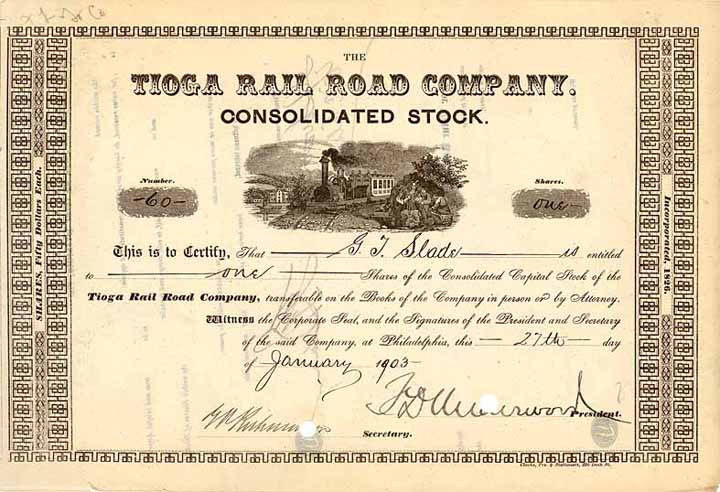 THE
TIOGA RAIL ROAD COMPANY.
CONSOLIDATED STOCK.
Number. Shares.
-60- one
This is to Certify, That G. T. Slade is entitled
to one Shares of the Consolidated Capital Stock of the
Tioga Rail Road Company, transferable on the Books of the Company in person or by Attorney.
Witness the Corporate Seal, and the Signatures of the President and Secretary
of the said Company, at Philadelphia, this 27th day
of January 1903
F D Underwood
President.
Secretary.
SHARES, Fifty Dollars Each.
Incorporated, 1826.